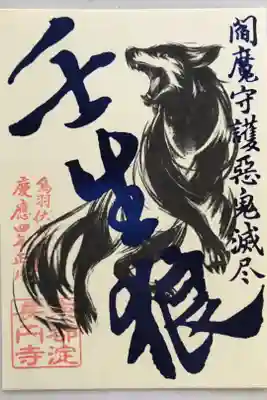 閻魔守護惡鬼滅尽
壬生狼
鳥羽伏
慶應四年正月
京都淀
長円寺